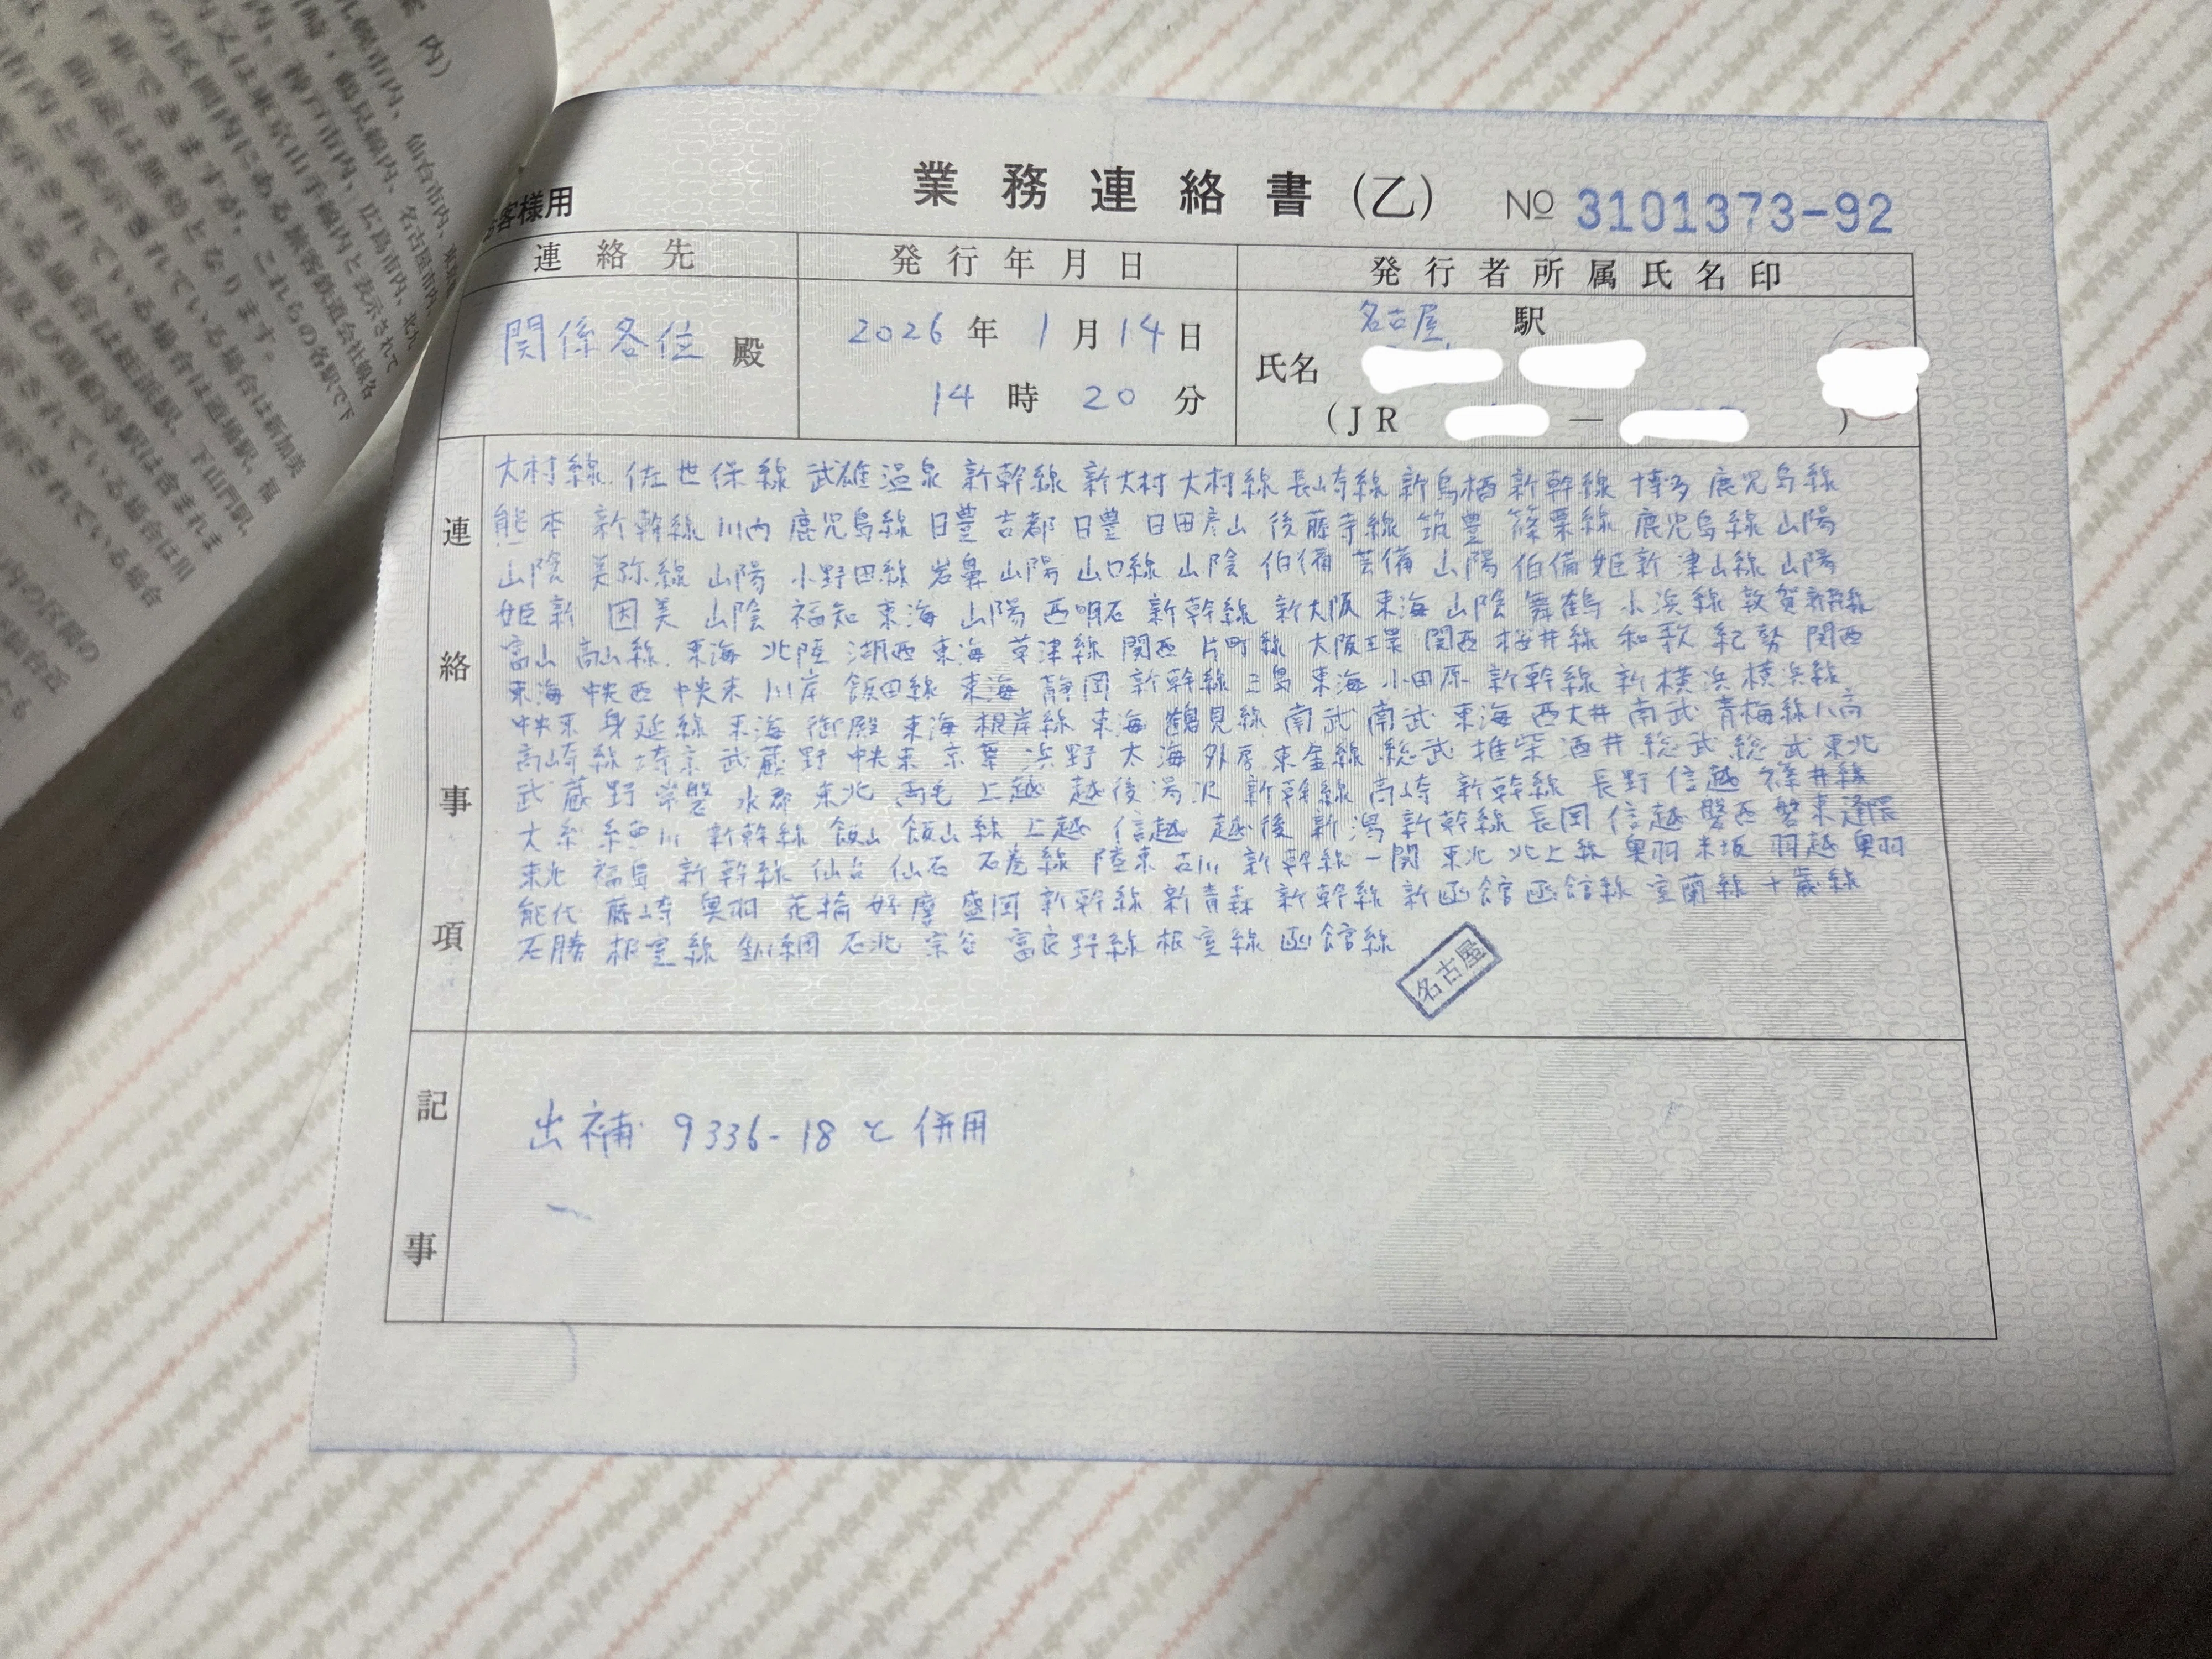 お客様用
業務連絡書(乙) No 3101373-92
連絡先 発行年月日 発行者所属氏名印
関係各位 殿
2026年1月14日
14時20分
名古屋 駅
氏名
(JR — )
連絡事項
大村線 佐世保線 武雄温泉 新幹線 新大村 大村線 長崎線 新鳥栖 新幹線 博多 鹿児島線
熊本 新幹線 川内 鹿児島線 日豊 吉都 日豊 日田彦山 後藤寺線 筑豊 篠栗線 鹿児島線 山陽
山陰 美弥線 山陽 小野田線 岩鼻 山陽 山口線 山陰 伯備 芸備 山陽 伯備 姫新 津山線 山陽
姫新 因美 山陰 福知 東海 山陽 西明石 新幹線 新大阪 東海 山陰 舞鶴 小浜線 敦賀 新幹線
富山 高山線 東海 北陸 湖西 東海 草津線 関西 片町線 大阪環 関西 桜井線 和歌 紀勢 関西
東海 中央西 中央東 川岸 飯田線 東海 静岡 新幹線 三島 東海 小田原 新幹線 新横浜 横浜線
中央東 身延線 東海 御殿 東海 根岸線 東海 鶴見線 南武 南武 東海 西大井 南武 青梅線 八高
高崎線 埼京 武蔵野 中央東 京葉 浜野 太海 外房 東金線 総武 推柴 酒井 総武 総武 東北
武蔵野 常磐 水郡 東北 両毛 上越 越後湯沢 新幹線 高崎 新幹線 長野 信越 篠井線
大糸 糸魚川 新幹線 飯山 飯山線 上越 信越 越後 新潟 新幹線 長岡 信越 磐西 磐東 逢隈
東北 福島 新幹線 仙台 仙石 石巻線 陸東 古川 新幹線 一関 東北 北上線 奥羽 米坂 羽越 奥羽
能代 藤崎 奥羽 花輪 好摩 盛岡 新幹線 新青森 新幹線 新函館 函館線 室蘭線 千歳線
石勝 根室線 釧網 石北 宗谷 富良野線 根室線 函館線
名古屋
記事
出補 9336-18 と併用